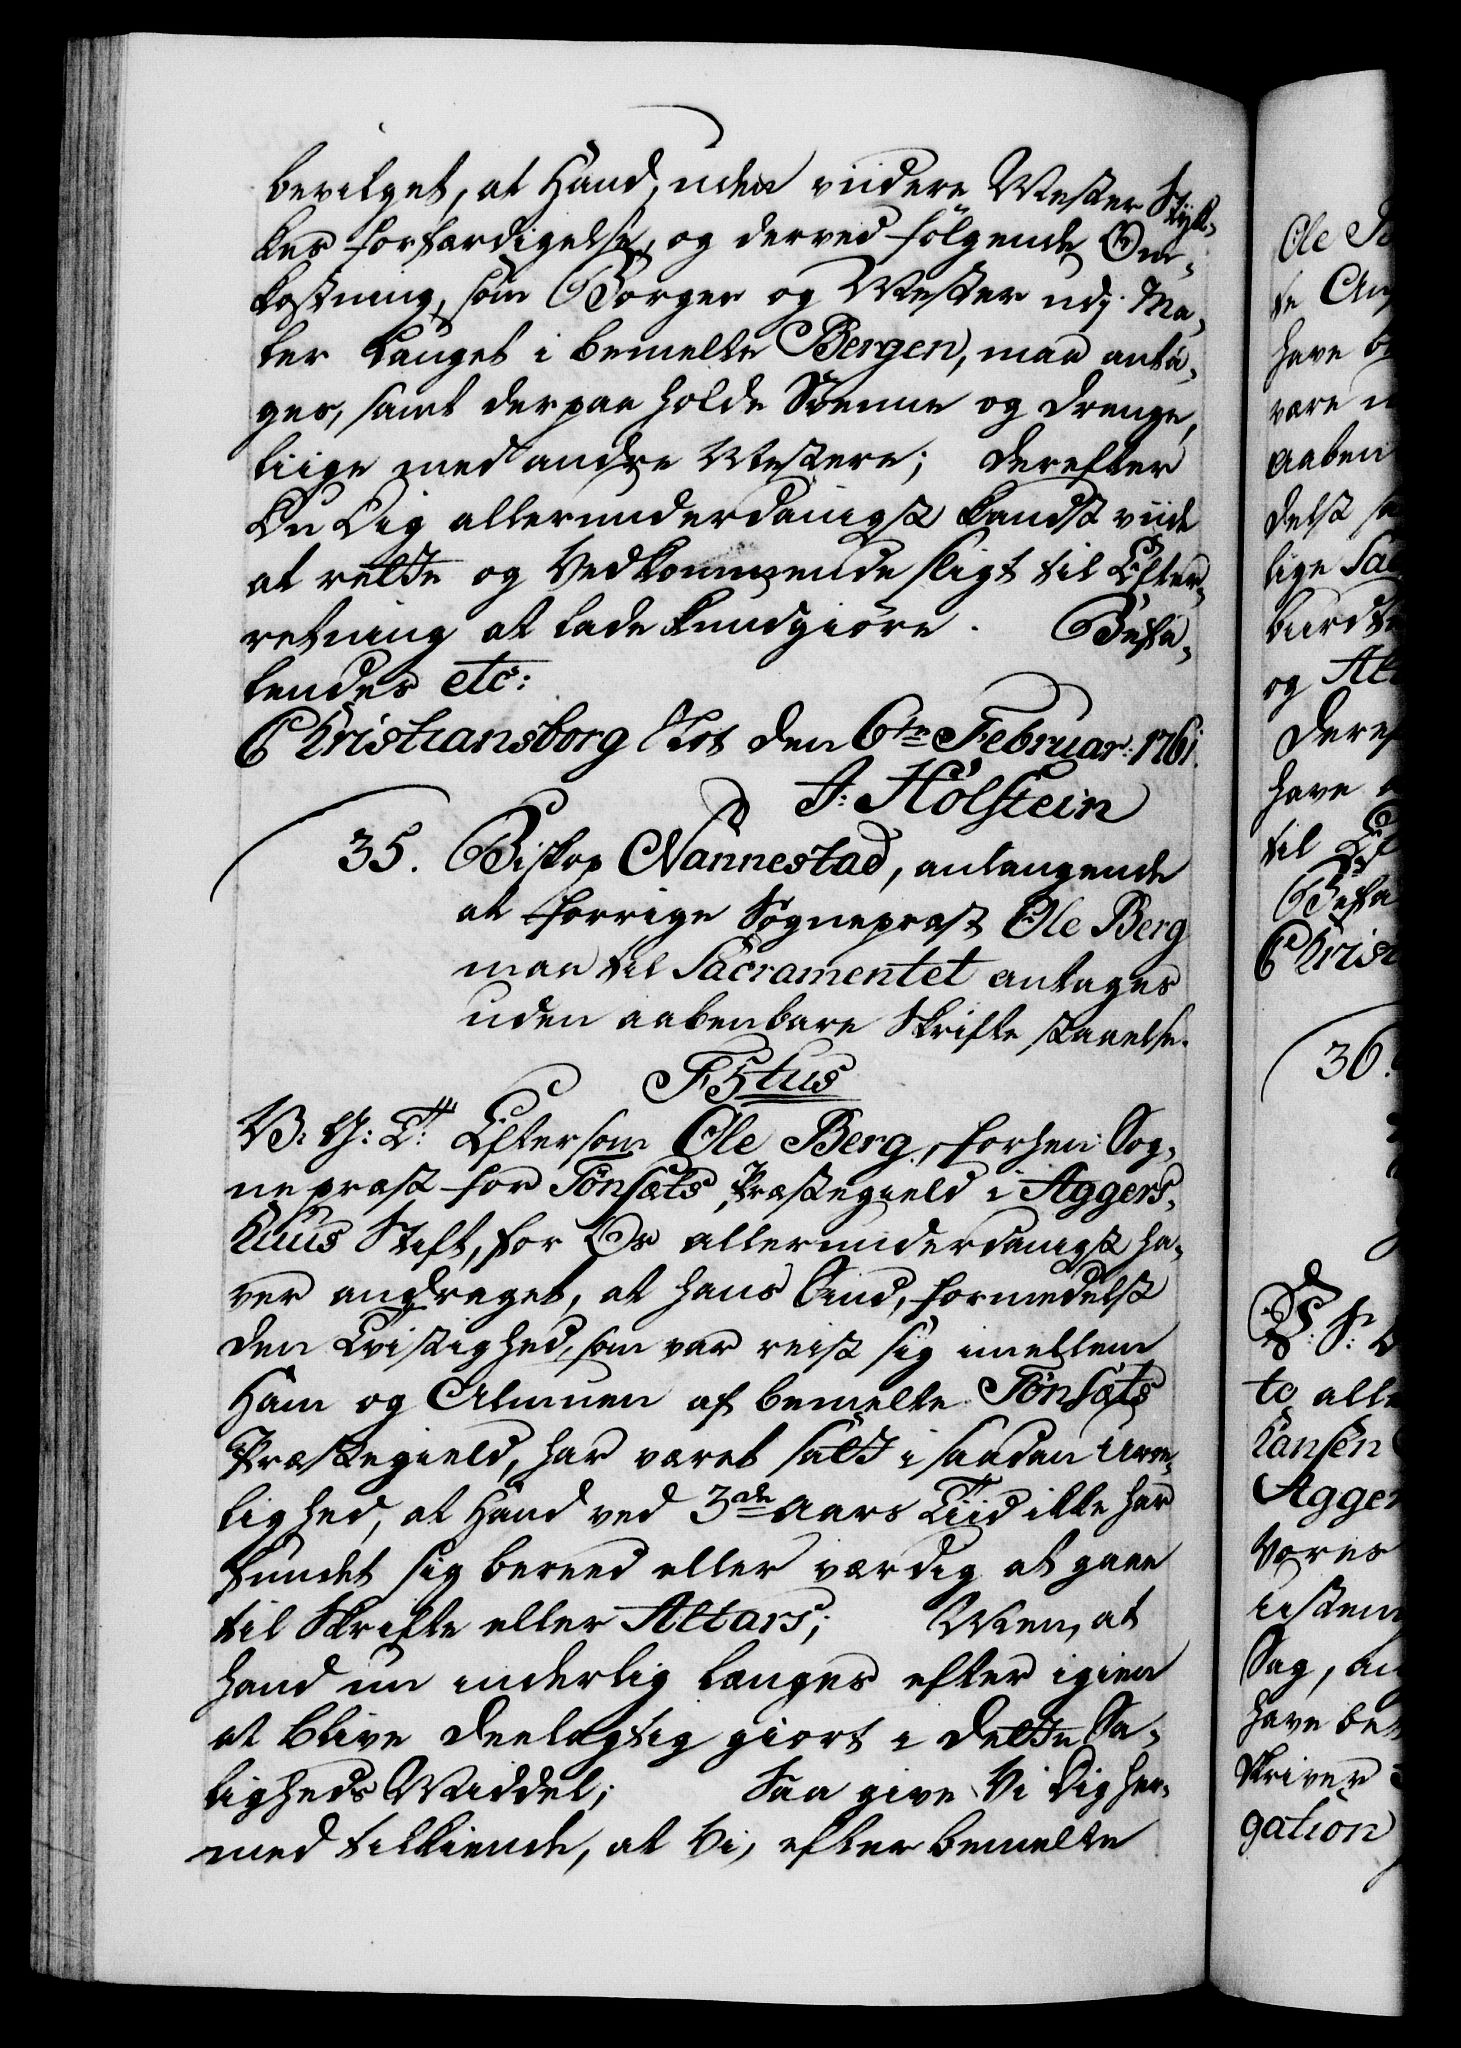 bevilget, at Hand, uden viidere Mester Styk-
kes forfærdigelse, og derved følgende Om-
kostning, som Borger og Mester udj Ma-
ler Lauget i bemelte Bergen, maa anta-
ges, samt derpaa holde Svenne og Drenge,
liige med andre Mestere; Derefter
Du Dig allerunderdanigst kandst viide
at rette og Vedkommende sligt til Efter-
retning at lade kundgiöre. Befa-
lendes etc:
Christiansborg Slot den 6te Februar: 1761.
J: Holstein
35. Biskop Nannestad, anlangende
at forrige Sognepræst Ole Berg
maa til Sacramentet antages
uden aabenbare Skrifte staaelse.
F5tus
V: G: T: Eftersom Ole Berg, forhen Sog-
nepræst for Tönsæts Præstegield i Aggers-
huus Stift, for Os allerunderdanigst ha-
ver andraget, at hans Sind, formedelst
den Tvistighed, som var reist sig imellem
Ham og Almuen af bemelte Tönsæts
Præstegield, har været satt i saadan Uroe-
lighed, at Hand ved 3de Aars Tiid ikke har
fundet sig bereed eller værdig at gaae
til Skrifte eller Altars; Men, at
Hand nu inderlig længes efter igien
at blive deelagtig giort i dette Sa-
ligheds Middel; Saa give Vi Dig her-
med tilkiende, at Vi, efter bemelte
Ole
te
have
være
aaben
delst
lige
og
Deref
have
til
Befa
Christ
36.
to alle
Hansen
Agger
Vores
Sag,
have be
Skriver
gation